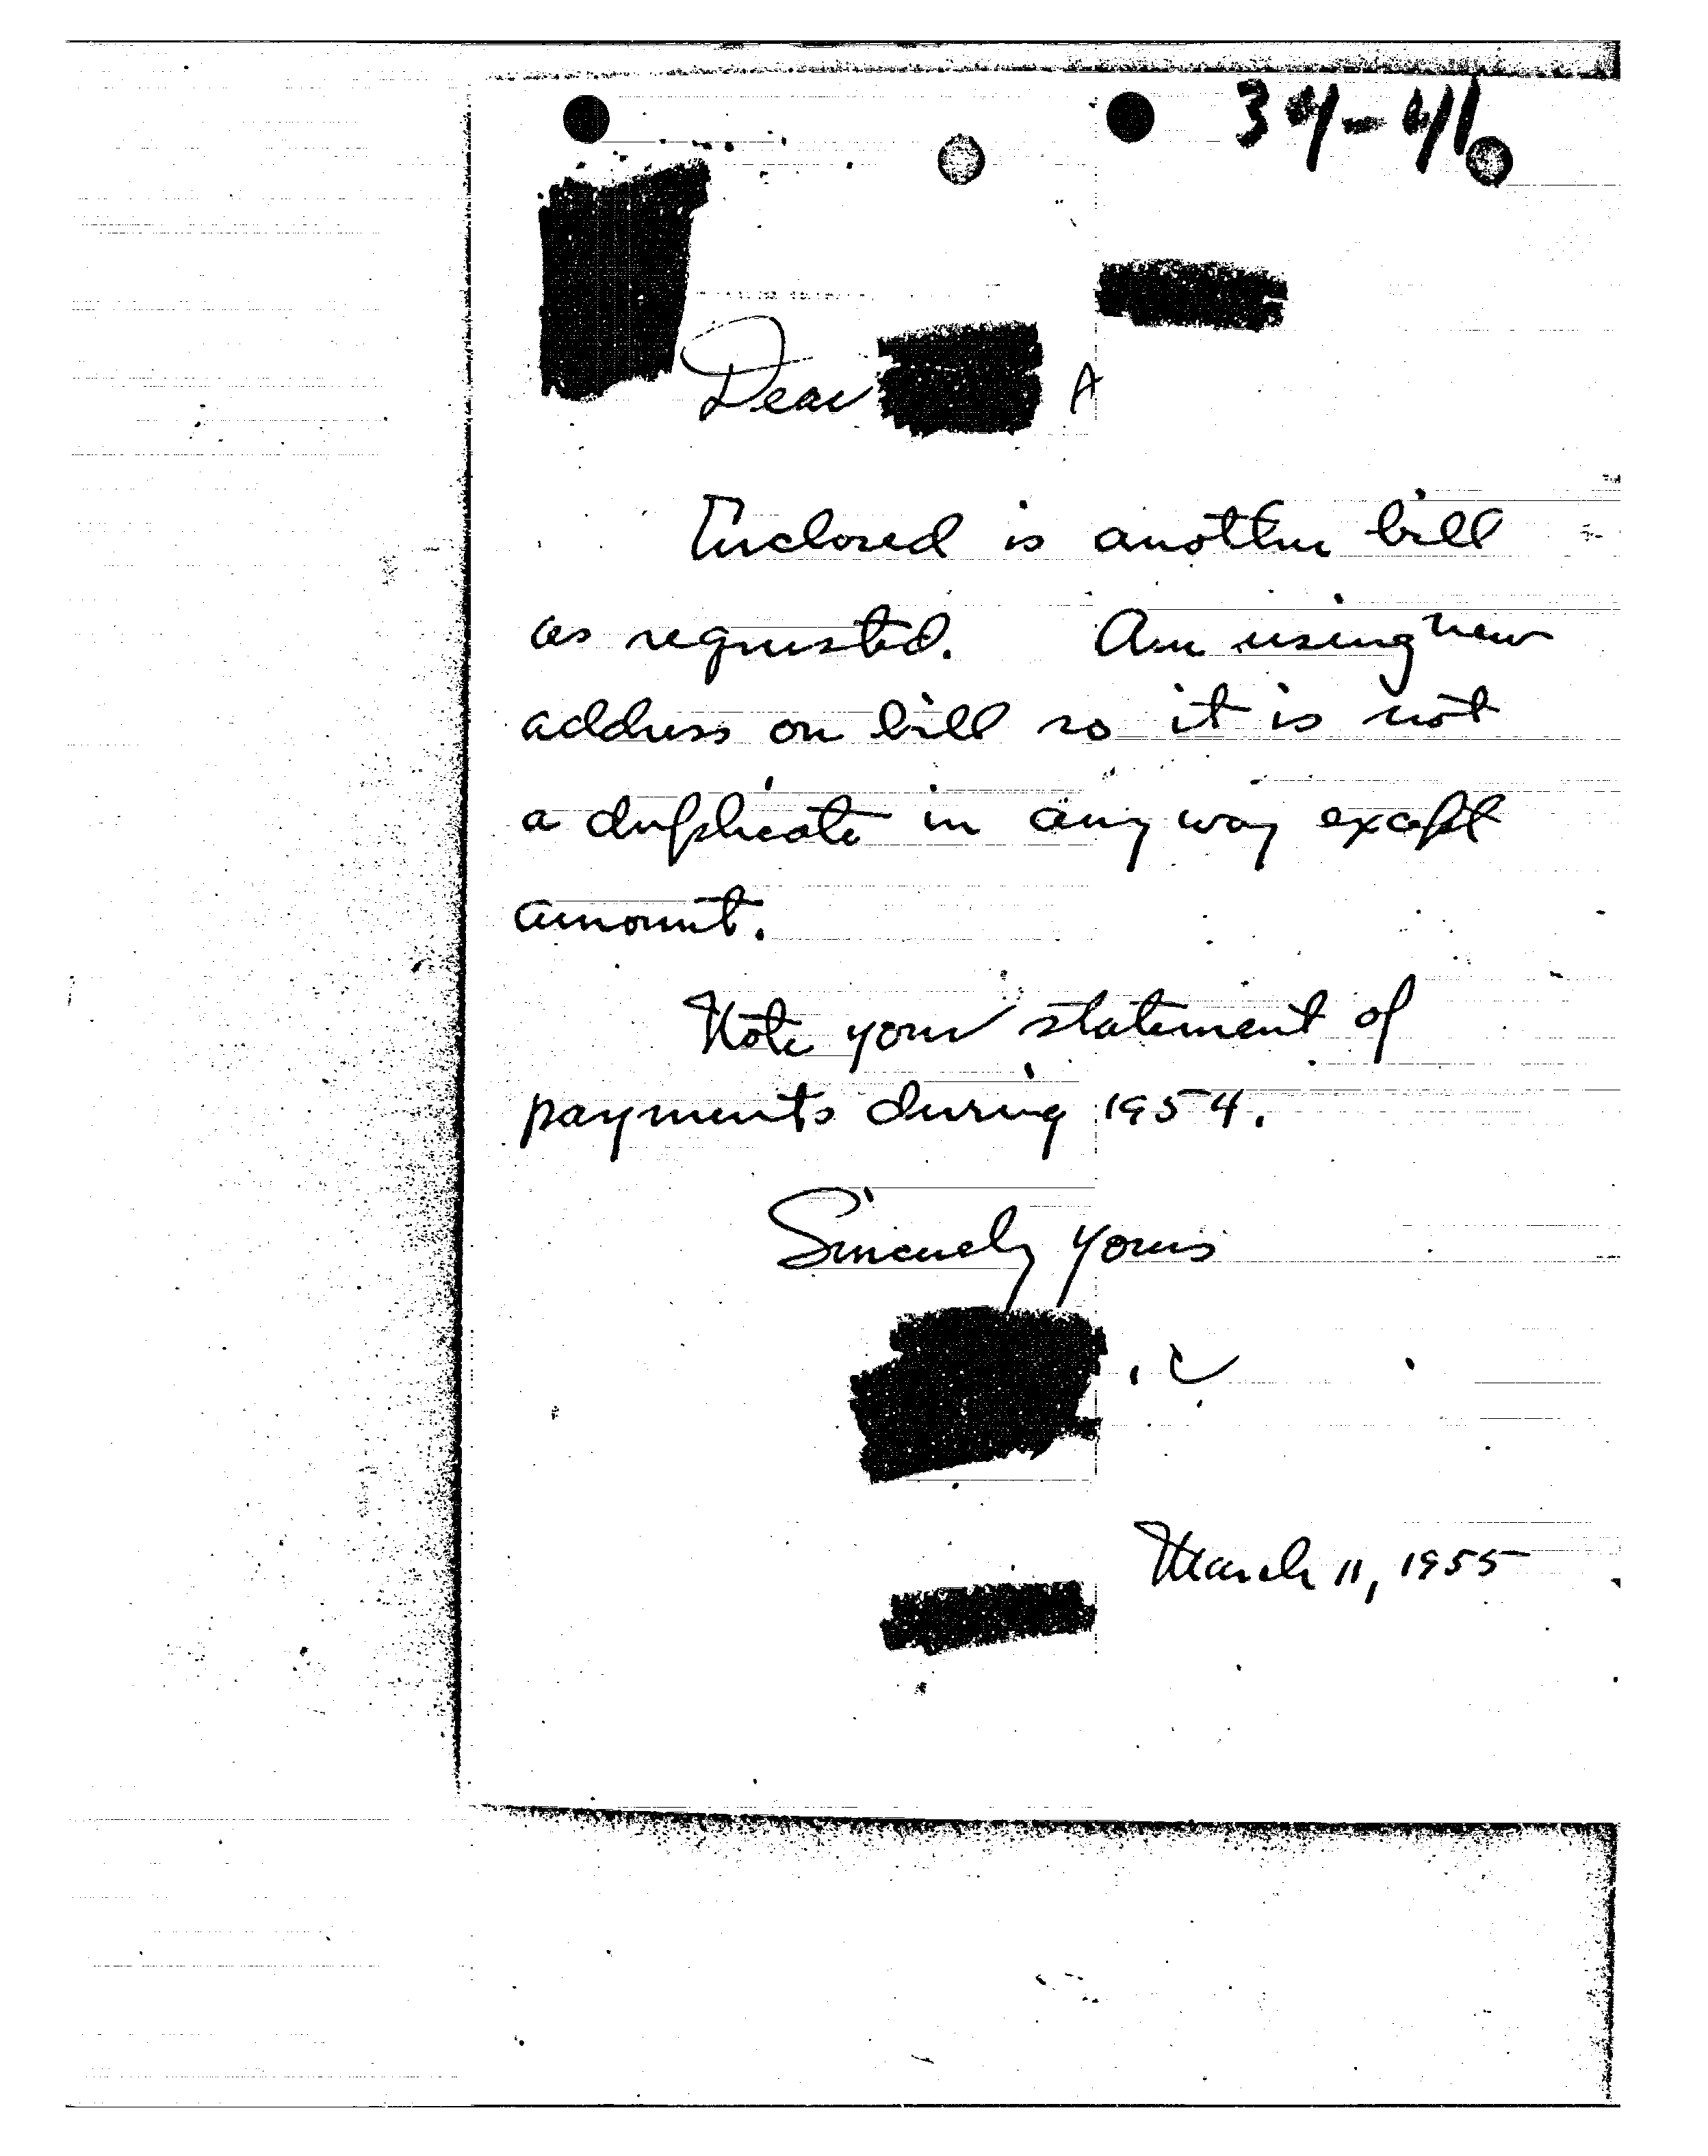 34-41
Dear A
Enclosed is another bill
as requested. Am using new
address on bill so it is not
a duplicate in any way except
amount.
Note your statement of
payments during 1954.
Sincerely yours
, C
March 11, 1955